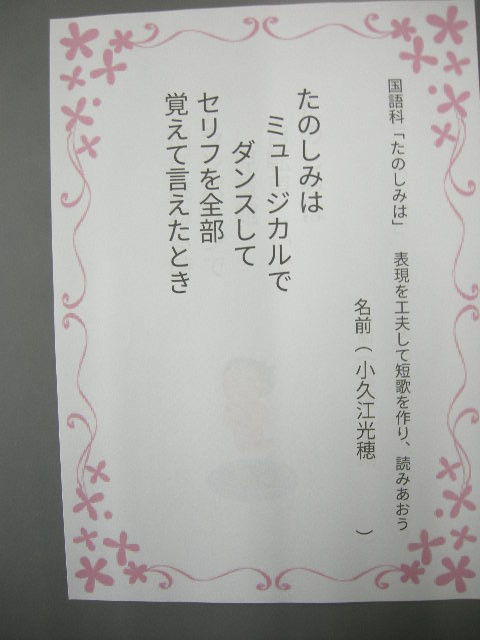 国語科「たのしみは」　表現を工夫して短歌を作り、読みあおう
名前（　小久江光穂　　　）
たのしみは
ミュージカルで
ダンスして
セリフを全部
覚えて言えたとき